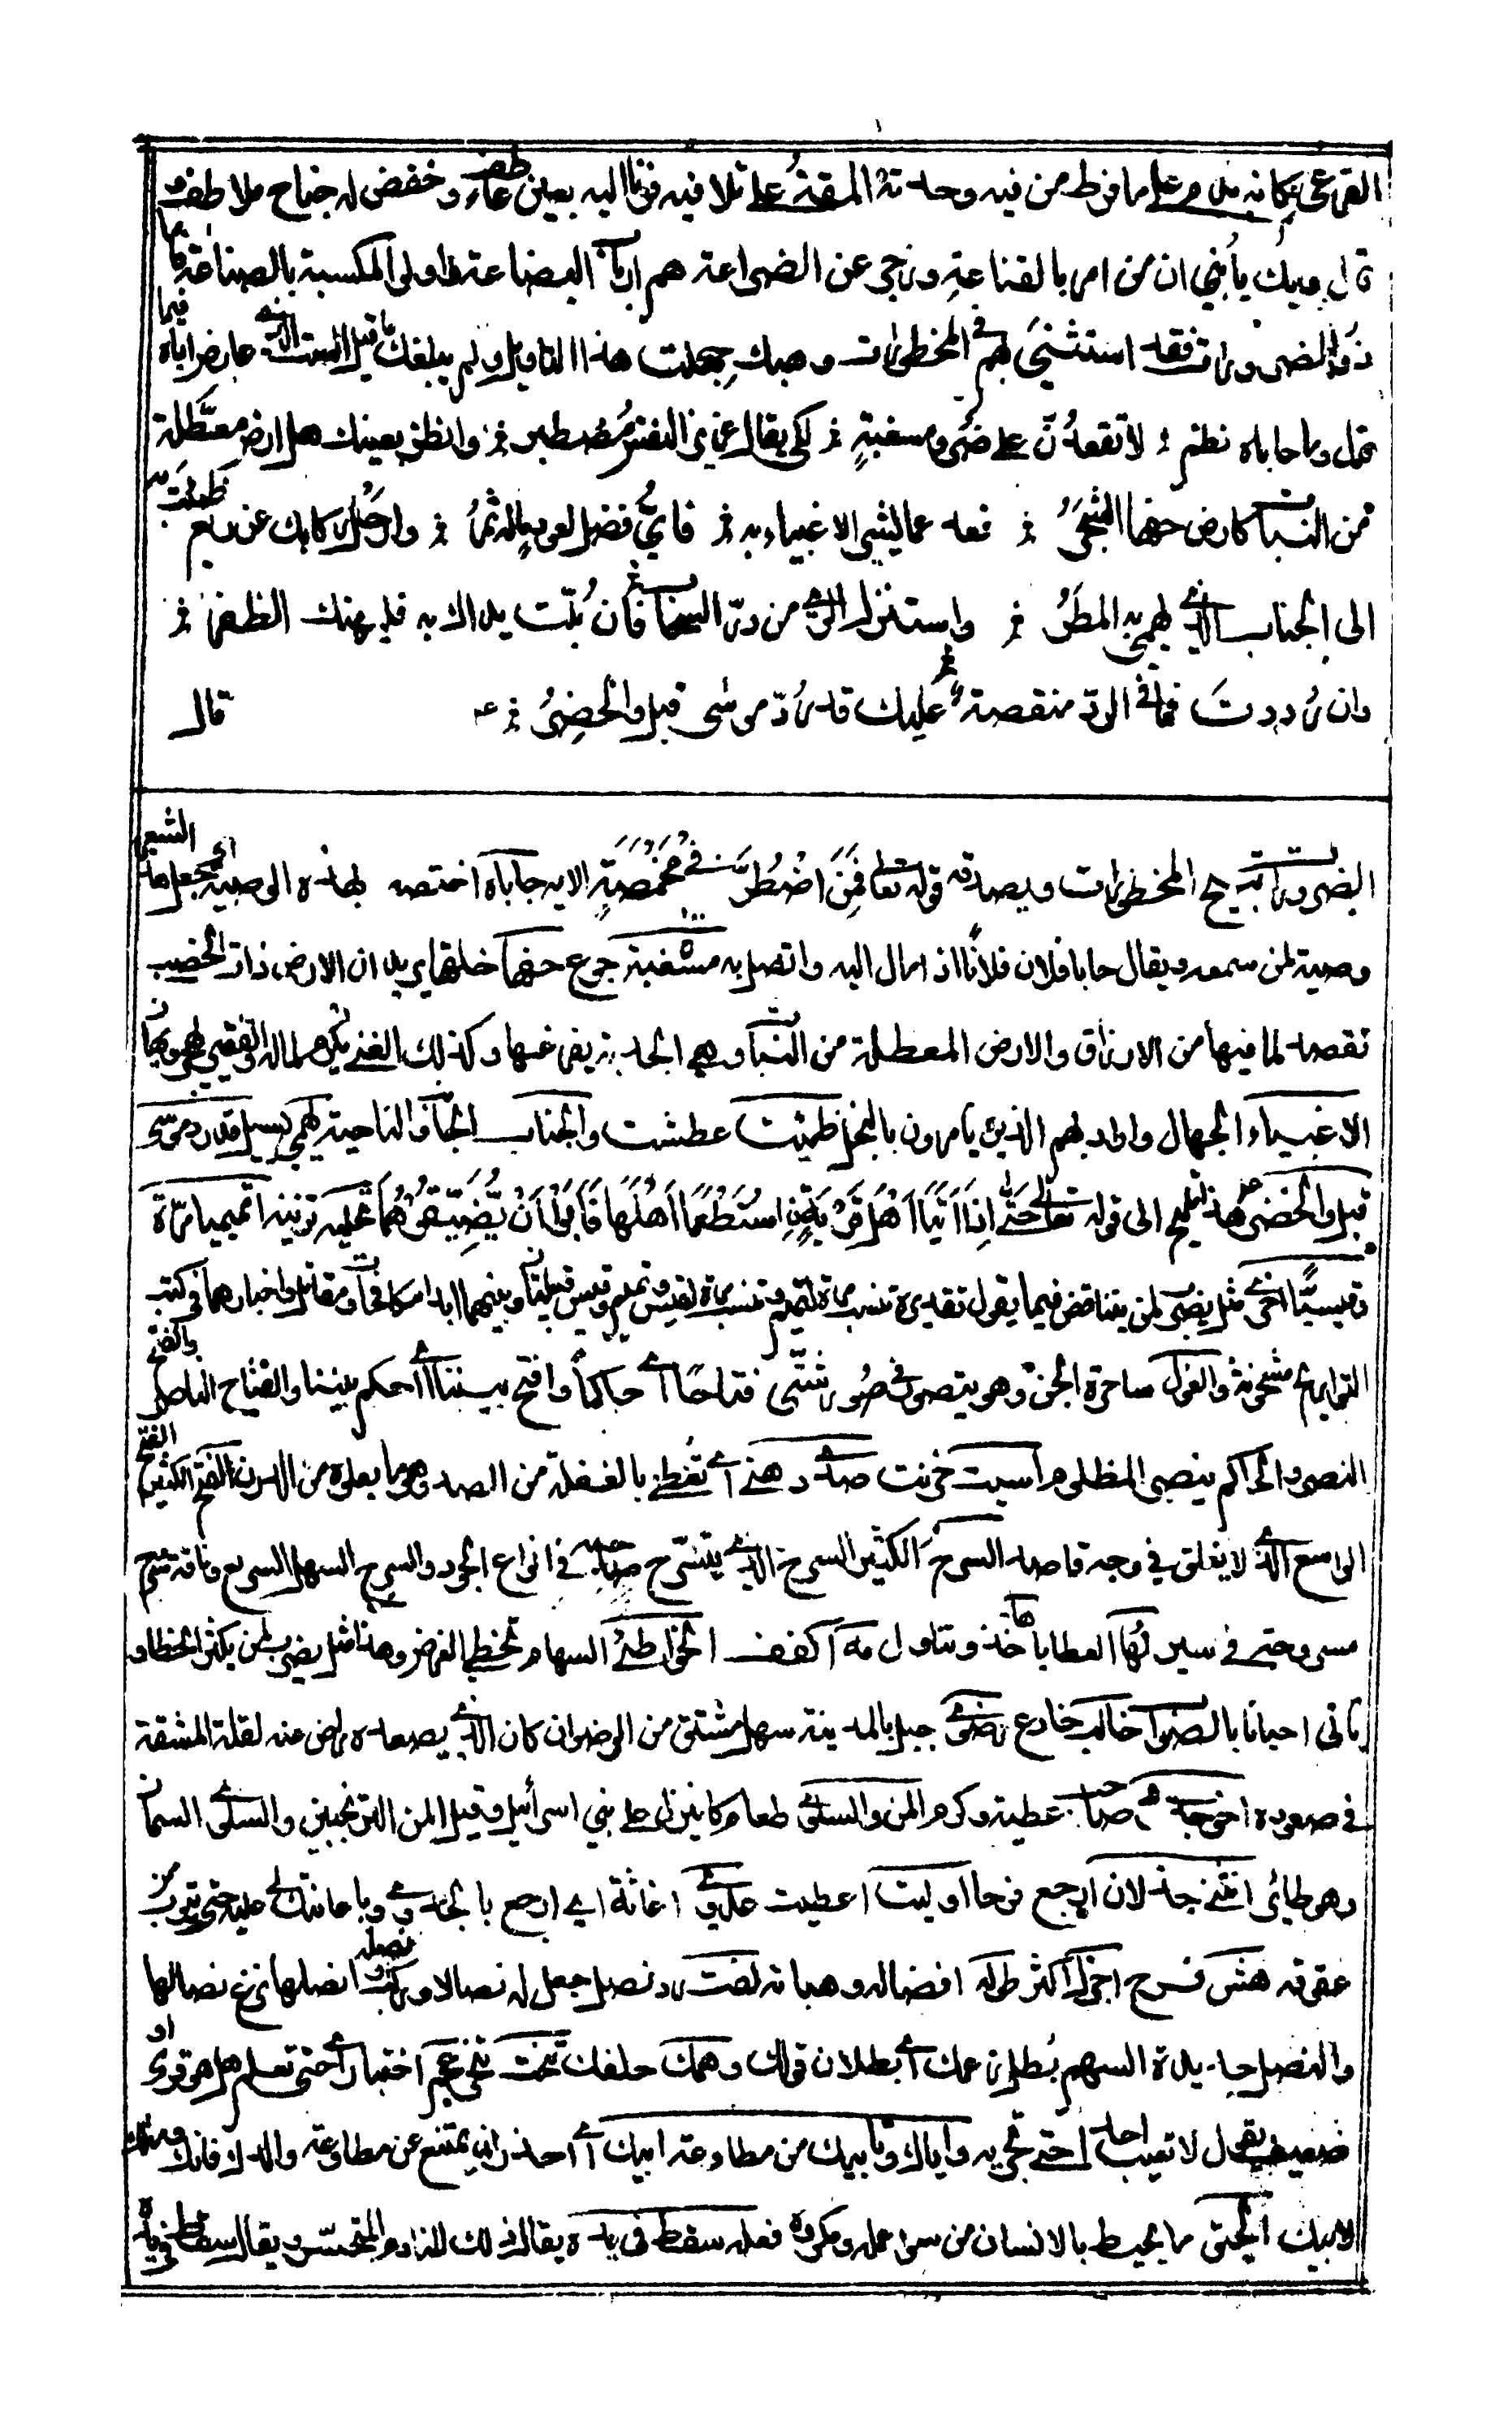 القرعى عكانه ندم على ما فرط من فيه وحدته المقة على تلافيه فرنا اليه بعين عاطف وخفض له جناح ملاطف و
قال ويك يا بني ان من امر بالقناعة وزجر عن الضراعة هم ارباب البضاعة واولو المكسبة بالصناعة فاما
ذوو الضرورات فقد استثني لهم في المحظورات وهبك جهلت هذا التاويل ولم يبلغك ما قيل الست الذي عارض اباه فيما
قال وما حاباه نظم لا تقعدن على ضر ومسغبة لكي يقال عزيز النفس مصطبر وانظر بعينك هل ارض معطلة
من النبات كارض حفها الشجر فعد عما تشير الاغبياء به فاي فضل لعود ماله ثمر وارحل ركابك عن ربع ظمئت به
الى الجناب الذي يهمي به المطر واستنزل الري من در السحاب فان بلت يداك به فليهنك الظفر
وان رددت فما في الرد منقصة عليك قد رد موسى قبل والخضر قال
الضرورات تبيح المحظورات ويصدقه قوله تعالى فمن اضطر في مخمصة الاية حاباه اختصه بهذه الوصية اي لم يجعل هذا الشعر
وصية لمن سمعه ويقال حابا فلان فلانا اذا مال اليه واتصل به مسغبة جوع حفها خلتها يريد ان الارض ذات الخصب
تقصد لما فيها من الارزاق والارض المعطلة من النبات وهي الجدبة يفر عنها وكذلك الغني يكرم لماله والفقير يهجر ويهان
الاغبياء الجهال واراد بهم الذين يامرون بالبخل ظمئت عطشت والجناب الجانب والناحية يهمي يسيل قد رد موسى
قبل والخضر هذا تلميح الى قوله تعالى حتى اذا اتيا اهل قرية استطعما اهلها فابوا ان يضيفوهما عليه تونيذ اتميميا مرة
وقيسيا اخرى مثل يضرب لمن يتناقض فيما يقول تقديره تنسب مرة لتميم وتنسب مرة لقيس وتميم وقيس قبيلتان وبينهما ابدا مكافات ومقاتل واخبارهما في كتب
التواريخ مشحونة والغول ساحرة الجن وهو يتصور في صور شتى فتاحا اي حاكما وافتح بيننا اي احكم بيننا والفتاح الناصر والفتح
النصر والحاكم ينصر المظلوم اسيت حزنت صدي ذهني اي تغطى بالغفلة من الصدا وهو ما يعلوه من الدرن الفتح الكثير الفتح
الواسع الذي لا يغلق في وجه قاصد السرح الكثير السرح الذي يتسرح صاحبه في انواع الجود والسرح السهل السريع وناقة سرح
مسروحة في سيرها لها العطايا ها خذ وتناول مه اكفف الخواطئ السهام تخطي الغرض وهذا مثل يضرب لمن يكثر الخطا و
ياتي احيانا بالصواب خالب خادع رضوى جبل بالمدينة سهل مشتق من الرضوان كان الذي يصعده راض عنه لقلة المشقة
في صعوده عطية وكرم المن والسلوى طعام كان ينزل على بني اسرائيل وقيل المن الترنجبين والسلوى السمان
وهو طائر انثني جذلان ارجع فرحا اوليت اعطيت جدوى اغاثة اي ارجع بالجدوى وباعانتك لي عليه حتى يتوب من
عقوقه هش فرح اجزل اكثر طوله افضاله وهباته لفت رد نصل جعل له نصالا وركب نصله وانصلها نزع نصالها
والنصل حديدة السهم بطل زعمك اي بطلان قولك وهمك حلفك نحت تخجم اختبارا اي حتى تعلم هل هو قوي او
ضعيف يقول لا تعيب احدا حتى تجربه واياك وتابيك من مطاوعة ابيك اي احذر ان تمتنع عن مطاوعة والدك فانك ومالك
لابيك الحيق ما يحيط بالانسان من سوء عمله ومكروه فعله سقط في يده يقال ذلك للنادم المتحسر ويقال سقط في يده